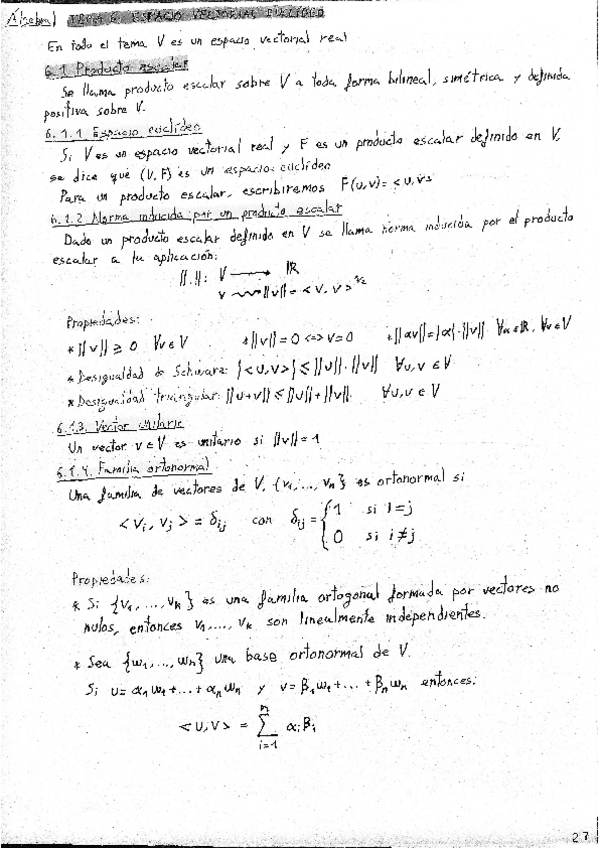 Álgebra I TEMA 6: ESPACIO VECTORIAL EUCLÍDEO
En todo el tema V es un espacio vectorial real
6.1 Producto escalar
Se llama producto escalar sobre V a toda forma bilineal, simétrica y definida
positiva sobre V.
6.1.1 Espacio euclídeo
Si V es un espacio vectorial real y F es un producto escalar definido en V,
se dice que (V,F) es un espacio euclídeo
Para un producto escalar, escribiremos F(u,v)= <u,v>
6.1.2 Norma inducida por un producto escalar
Dado un producto escalar definido en V se llama norma inducida por el producto
escalar a la aplicación:
||.||: V → ℝ
v ⟿ ||v|| = <v,v>^1/2
Propiedades:
* ||v|| ≥ 0 ∀v∈V * ||v|| = 0 <=> v=0 * ||αv|| = |α|·||v|| ∀α∈ℝ, ∀v∈V
* Desigualdad de Schwarz: |<u,v>| ≤ ||u||·||v|| ∀u,v ∈ V
* Desigualdad triangular: ||u+v|| ≤ ||u||+||v||. ∀u,v ∈ V
6.1.3. Vector unitario
Un vector v∈V es unitario si ||v|| = 1
6.1.4. Familia ortonormal
Una familia de vectores de V, {v₁,..., vₙ} es ortonormal si
<vᵢ, vⱼ> = δᵢⱼ con δᵢⱼ = { 1 si i=j
0 si i≠j
Propiedades:
* Si {v₁,..., vₖ} es una familia ortogonal formada por vectores no
nulos, entonces v₁,..., vₖ son linealmente independientes.
* Sea {w₁,..., wₙ} una base ortonormal de V.
Si u= α₁w₁+...+ αₙwₙ y v= β₁w₁+...+ βₙwₙ entonces:
<u,v> = ∑ᵢ₌₁ⁿ αᵢβᵢ
27